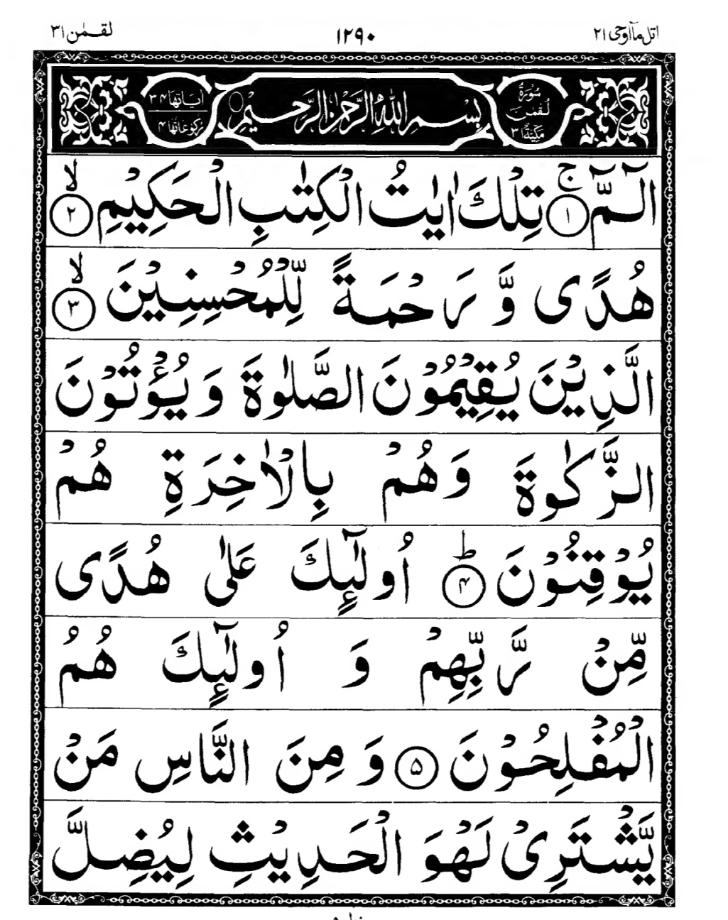 اتل مآ اوحی ۲۱ ۱۲۹۰ لقمٰن ۳۱
سُوْرَةُ لُقْمٰنَ مَكِّيَّةٌ ۳۱ بِسْمِ اللّٰهِ الرَّحْمٰنِ الرَّحِيْمِ اٰيَاتُهَا ۳۴ رُكُوْعَاتُهَا ۴
الٓمّٓ ۚ﴿۱﴾ تِلْكَ اٰيٰتُ الْكِتٰبِ الْحَكِيْمِ ۙ﴿۲﴾
هُدًى وَّ رَحْمَةً لِّلْمُحْسِنِيْنَ ۙ﴿۳﴾
الَّذِيْنَ يُقِيْمُوْنَ الصَّلٰوةَ وَ يُؤْتُوْنَ
الزَّكٰوةَ وَهُمْ بِالْاٰخِرَةِ هُمْ
يُوْقِنُوْنَ ؕ﴿۴﴾ اُولٰٓئِكَ عَلٰى هُدًى
مِّنْ رَّبِّهِمْ وَ اُولٰٓئِكَ هُمُ
الْمُفْلِحُوْنَ ﴿۵﴾ وَ مِنَ النَّاسِ مَنْ
يَّشْتَرِىْ لَهْوَ الْحَدِيْثِ لِيُضِلَّ